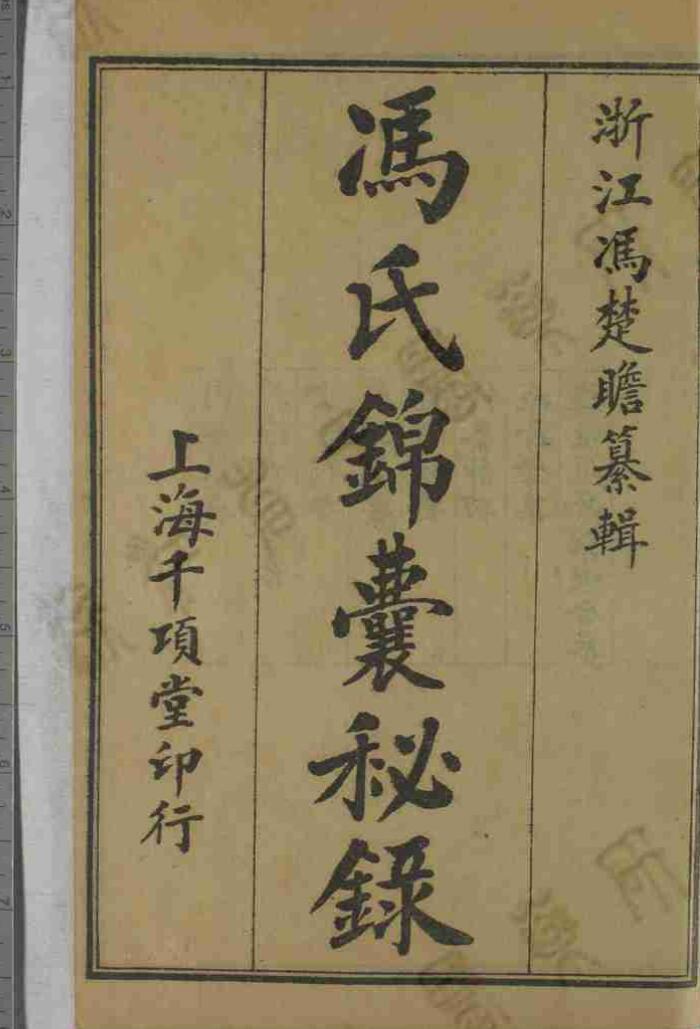 浙江馮楚瞻纂輯
馮氏錦囊秘錄
上海千頃堂印行